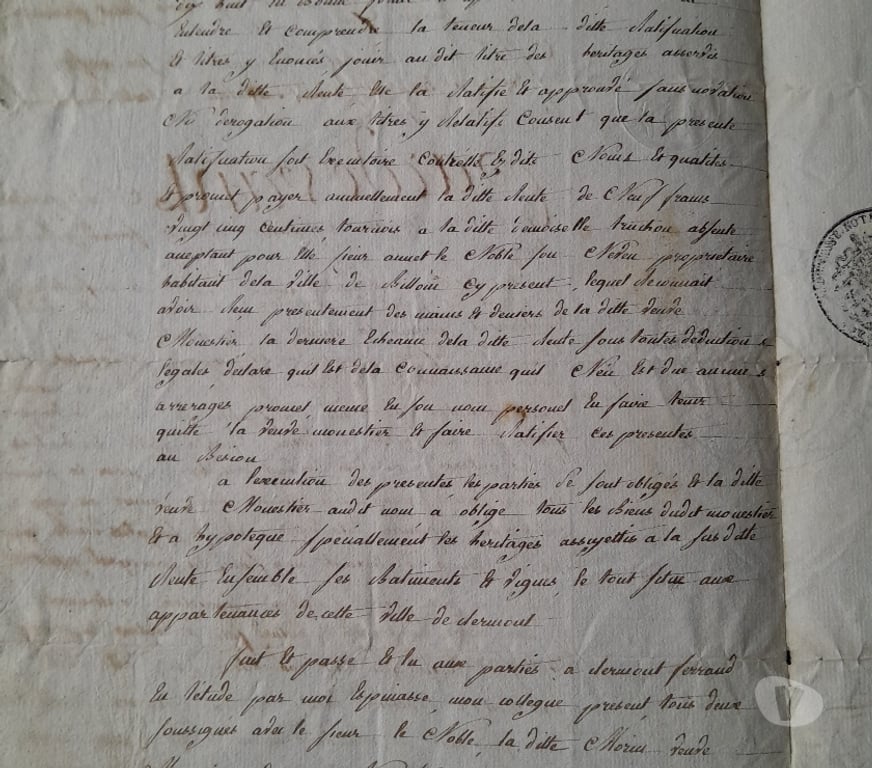 Entendre et Comprendre la teneur dela ditte Ratification
et titres y Enoncés jouir audit titre des heritages asservis
a la ditte Rente Elle la Ratifie et approuve sans novation
Ni derogation aux titres y Relatifs Consent que la presente
Ratification soit Executoire Contr'elle Esdits Noms et qualites
Et promet payer annuellement la ditte Rente de Neuf francs
vingt cinq centimes tournois a la ditte demoiselle truchon absente
aceptant pour Elle sieur annet le Noble son Neveu proprietaire
habitant dela ville de Billom Cy present, lequel Reconnait
avoir Reçu presentement des mains et deniers de la ditte veuve
Monestier la derniere Echeance dela ditte Rente sous toutes deductions
legales declare quil Est dela Connaissance quil N'en Est due aucuns
arrerages promet meme En son nom personel En faire tenir
quitte la veuve monestier et faire Ratifier ces presentes
au Besoin
a l'execution des presentes les parties se sont obligés et la ditte
veuve Monestier audit nom a oblige tous les Biens dudit monestier
Et a hypoteque specialement les heritages assujettis a la susditte
Rente Ensemble ses Batiments et vignes, le tout situé aux
appartenances de cette ville de clermont
fait et passe et lu aux parties a clermont ferrand
En l'etude par moi Espinasse, mon collegue present, tous deux
soussignes avec le sieur le Noble, la ditte Morin veuve